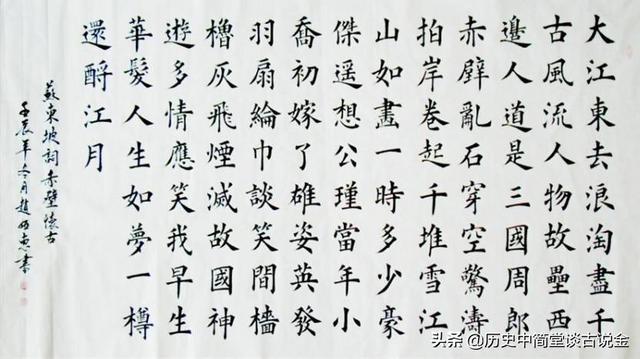 大江東去浪淘盡千
古風流人物故壘西
邊人道是三國周郎
赤壁亂石穿空驚濤
拍岸卷起千堆雪江
山如畫一時多少豪
傑遥想公瑾當年小
喬初嫁了雄姿英發
羽扇綸巾談笑間檣
櫓灰飛煙滅故國神
遊多情應笑我早生
華髮人生如夢一樽
還酹江月
蘇東坡詞赤壁懷古
壬辰年冬月趙書
头条 @历史中简堂谈古说金